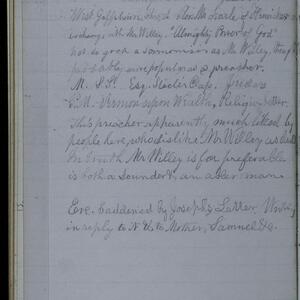 West Goffstown,
exchange with Mr Willey. "Almighty Power of God"
not so good a sermonizer as Mr Willey, though
probably more popular as a preacher.
M. S.S. Esq. Steeler's Class.
P.M. Sermon upon Wealth, Religion better.
This preacher apparently much liked by
people here, who dislike Mr Willey as
In truth Mr Willey is far preferable
is both a sounder & an abler man.
Eve. Saddened by Joseph's Letter. Writing
in reply to it & to Mother, Samuel &c.